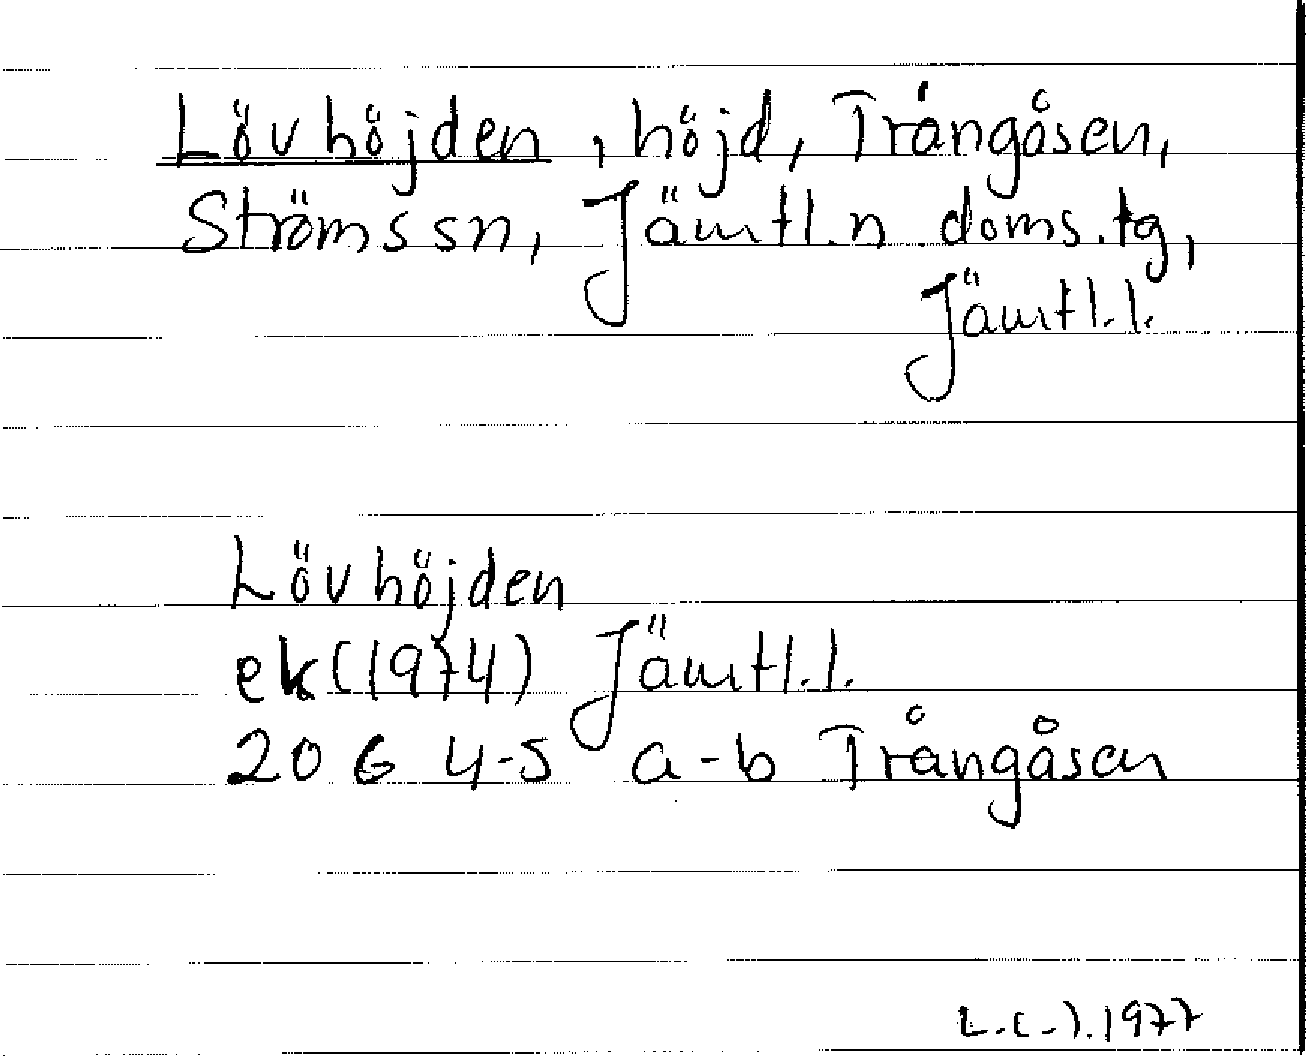 Lövhöjden, höjd, Trångåsen,
Ströms sn, Jämtl.n doms.tg,
Jämtl.l.
Lövhöjden
ek(1974) Jämtl.l.
20 G 4-5 a-b Trångåsen
1977